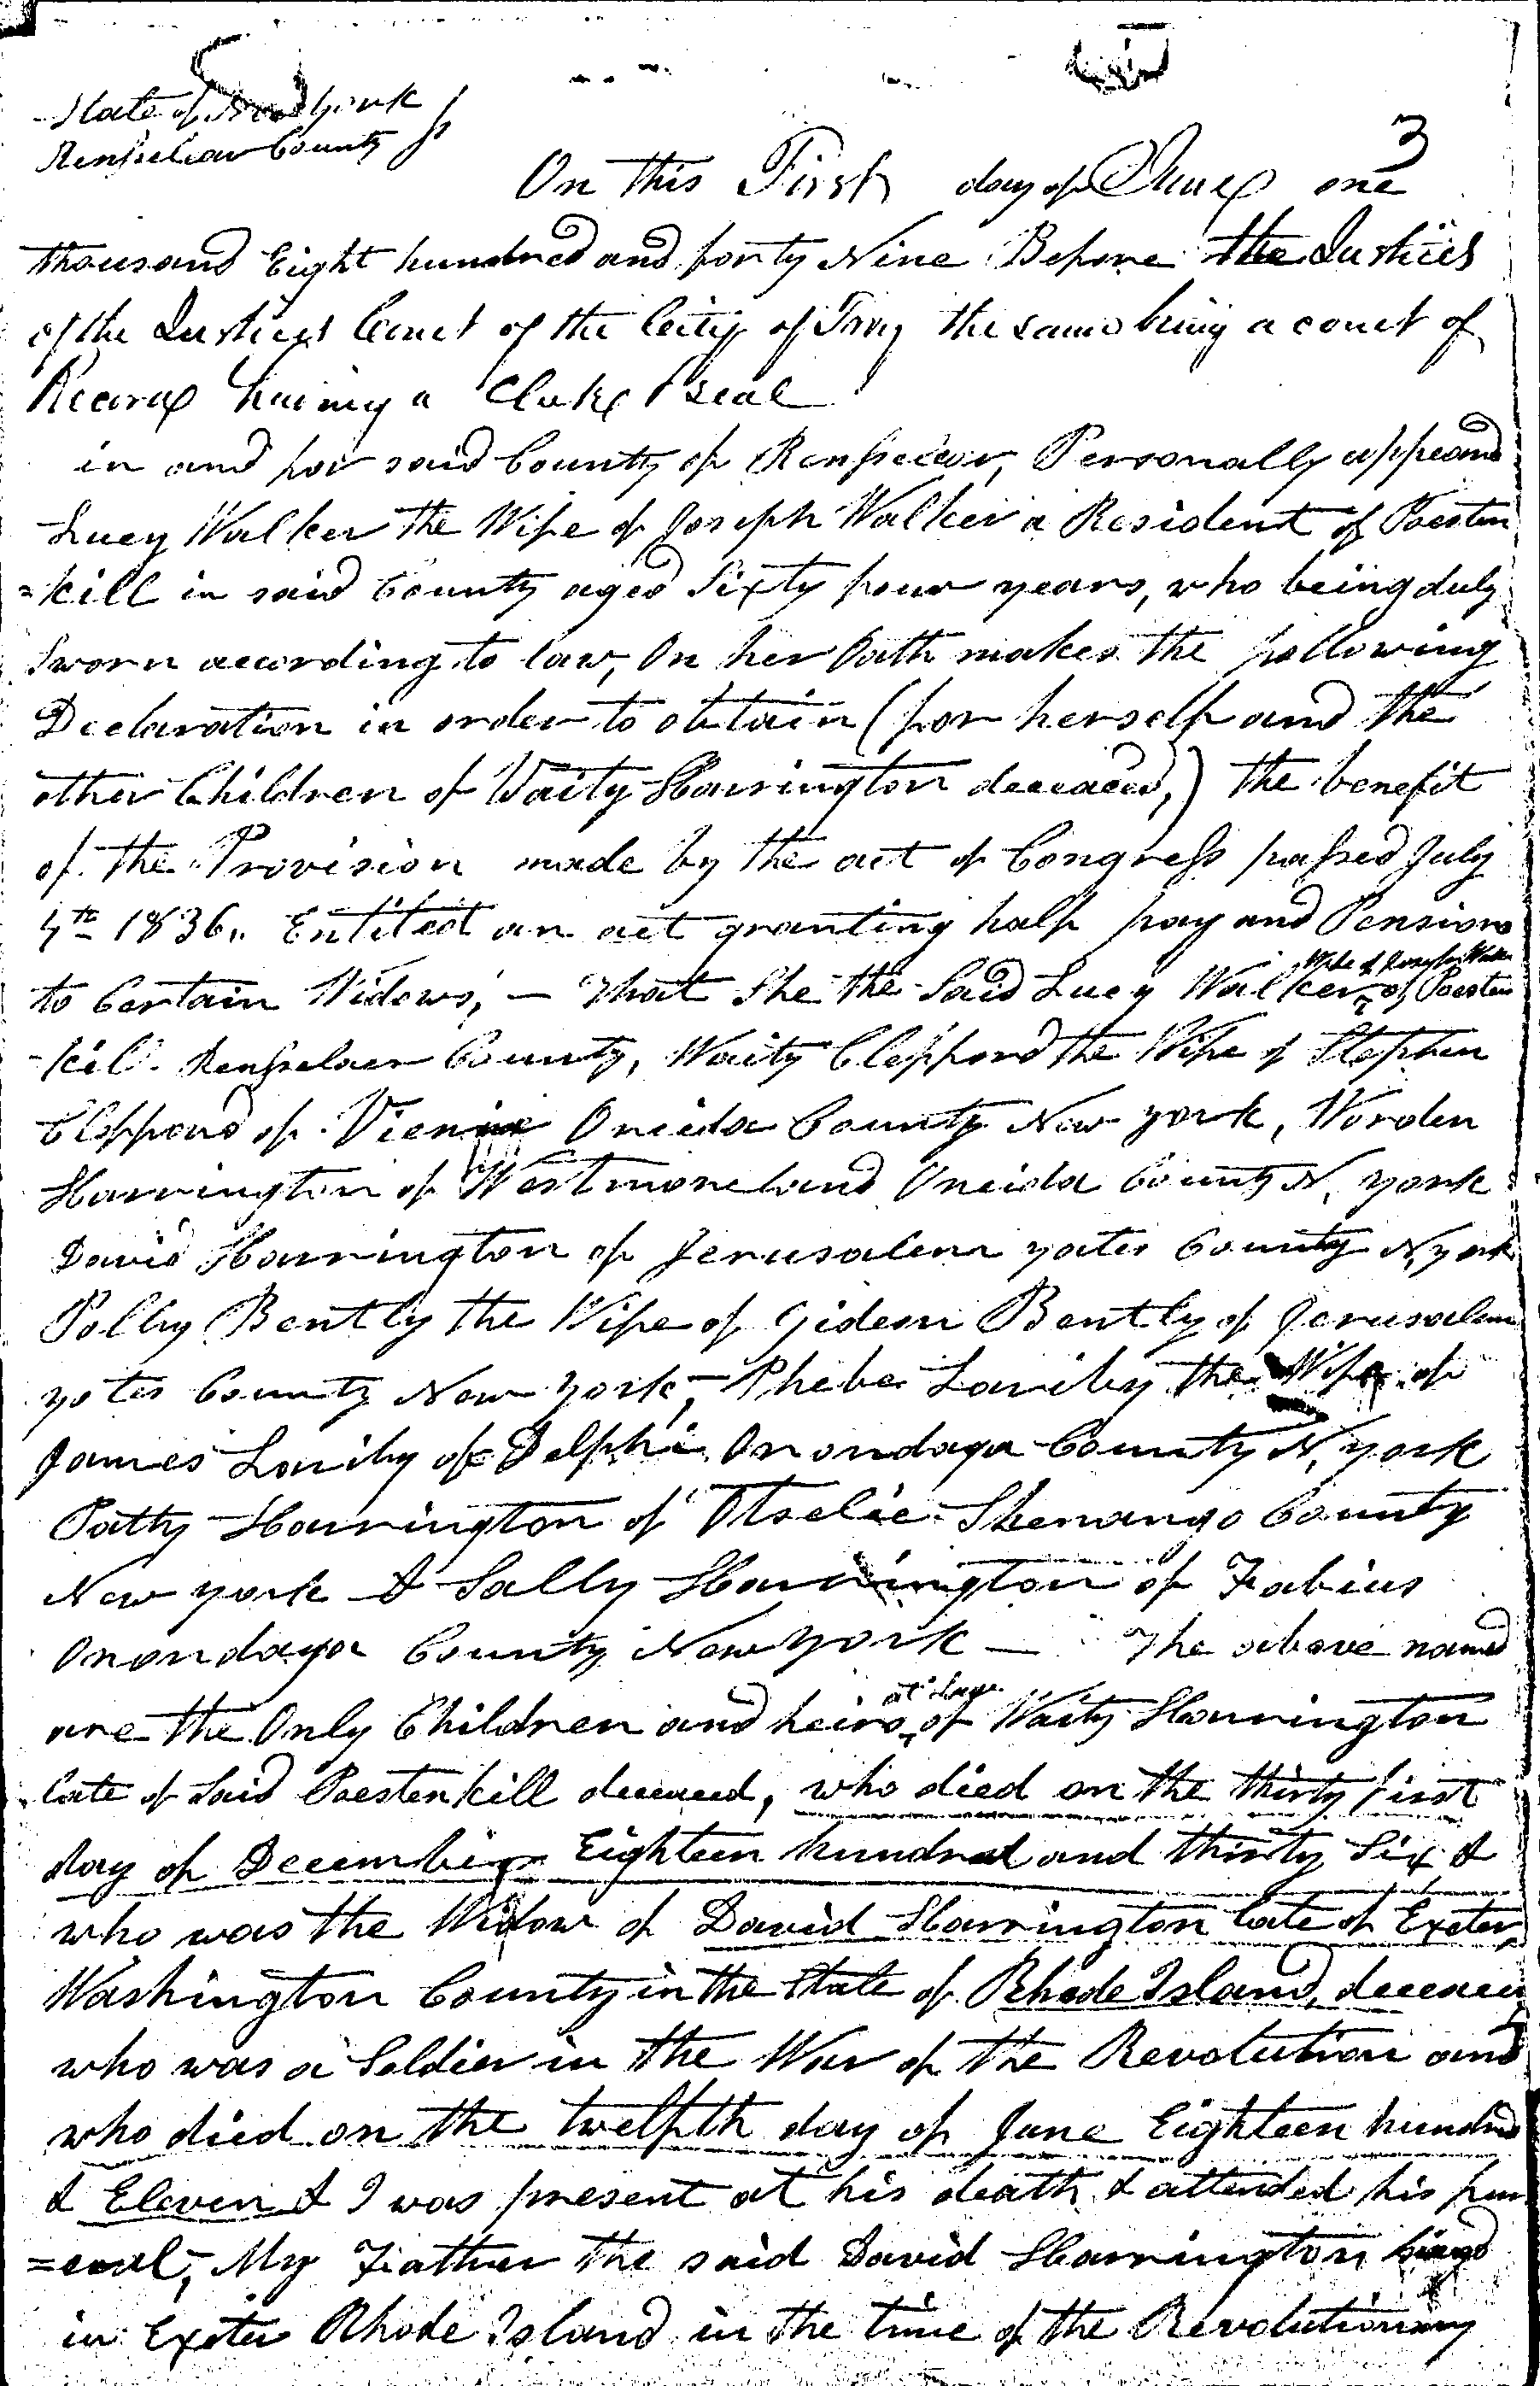 State of New York
Rensselaer County } ss
3
On this First day of June one
thousand Eight hundred and forty Nine Before the Justices
of the Justices Court of the City of Troy the same being a court of
Record having a Clerk & seal
in and for said County of Rensselaer, Personally appeared
Lucy Walker the Wife of Joseph Walker a Resident of Poesten
=kill in said County aged Sixty four years, who being duly
Sworn according to law, On her Oath makes the following
Declaration in order to obtain (for herself and the
other Children of Waity Harrington deceased,) the benefit
of the Provision made by the act of Congress passed July
4th 1836. Entitled an act granting half pay and Pensions
to Certain Widows, — That She the Said Lucy Walker, wife of Joseph Walker of Poesten
-kill Rensselaer County, Waity Clapford the Wife of Stephen
Clapford of Vienna Oneida County New York, Worden
Harrington of Westmoreland Oneida County N. York
David Harrington of Jerusalem yates County N. york
Polly Bently the Wife of Gideon Bently of Jerusalem
yates County New York, Phebe the Wife of
James of Delphi Onondaga County N. York
Patty Harrington of Otselic Shenango County
New york & Sally Harrington of Fabius
Onondaga County New York — The above named
are the Only Children and heirs at law of Waity Harrington
late of Said Poestenkill deceased, who died on the thirty first
day of December Eighteen hundred and thirty Six &
who was the Widow of David Harrington late of Exeter,
Washington County in the State of Rhode Island, deceased
who was a Soldier in the War of the Revolution and
who died on the twelfth day of June Eighteen hundred
& Eleven & I was present at his death & attended his fun
=eral, My Father the said David Harrington lived
in Exeter Rhode Island in the time of the Revolutionary